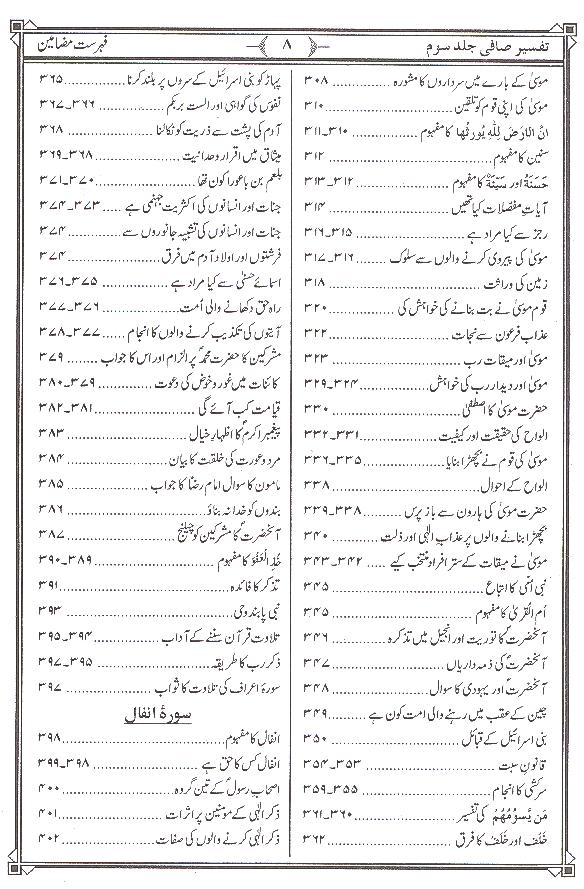 تفسیر صافی جلد سوم ﴿۸﴾ فہرست مضامین
موسیٰؑ کے بارے میں سرداروں کا مشورہ ............ ۳۰۸
موسیٰؑ کی اپنی قوم کو تلقین ............ ۳۱۰
اِنَّ الۡاَرۡضَ لِلّٰہِ یُورِثُھَا کا مفہوم ............ ۳۱۰_۳۱۱
سنین کا مفہوم ............ ۳۱۲
حَسَنَۃٌ اور سَیِّئَۃٌ کا مفہوم ............ ۳۱۲_۳۱۳
آیاتِ مفصلات کیا تھیں ............ ۳۱۴
رجز سے کیا مراد ہے ............ ۳۱۵_۳۱۶
موسیٰؑ کی پیروی کرنے والوں سے سلوک ............ ۳۱۶_۳۱۷
زمین کی وراثت ............ ۳۱۸
قوم موسیٰؑ نے بت بنانے کی خواہش کی ............ ۳۲۰
عذاب فرعون سے نجات ............ ۳۲۲
موسیٰؑ اور میقات رب ............ ۳۲۳
موسیٰؑ اور دیدار رب کی خواہش ............ ۳۲۴_۳۲۹
حضرت موسیٰؑ کا اصطفیٰ ............ ۳۳۰
الواح کی حقیقت اور کیفیت ............ ۳۳۱_۳۳۲
موسیٰؑ کی قوم نے بچھڑا بنایا ............ ۳۳۵_۳۳۶
الواح کے احوال ............ ۳۳۸
حضرت موسیٰؑ کی ہارون سے باز پرس ............ ۳۳۸_۳۳۹
بچھڑا بنانے والوں پر عذاب الٰہی اور ذلت ............ ۳۴۰
موسیٰؑ نے میقات کے ستر افراد منتخب کیے ............ ۳۴۲_۳۴۳
نبی امّی کا اتباع ............ ۳۴۵
اُم القریٰ کا مفہوم ............ ۳۴۵
آنحضرتؐ کا توریت اور انجیل میں تذکرہ ............ ۳۴۶
آنحضرتؐ کی ذمہ داریاں ............ ۳۴۷
آنحضرتؐ اور یہودی کا سوال ............ ۳۴۸
چین کے عقب میں رہنے والی امت کون ہے ............ ۳۴۹
بنی اسرائیل کے قبائل ............ ۳۵۰
قانونِ سبت ............ ۳۵۳_۳۵۴
سرکشی کا انجام ............ ۳۵۵_۳۵۹
مَن یَّسُوۡمُھُمۡ کی تفسیر ............ ۳۶۰_۳۶۱
خَلَف اور خَلْف کا فرق ............ ۳۶۲
پہاڑ کو بنی اسرائیل کے سروں پر بلند کرنا ............ ۳۶۵
نفوس کی گواہی اور الست بربکم ............ ۳۶۶_۳۶۷
آدم کی پشت سے ذریت کو نکالنا ............ ۳۶۸
میثاق میں اقرار وحدانیت ............ ۳۶۸_۳۶۹
بلعم بن باعورا کون تھا ............ ۳۷۰_۳۷۱
جنات اور انسانوں کی اکثریت جہنمی ہے ............ ۳۷۳_۳۷۴
جنات اور انسانوں کی تشبیہ جانوروں سے ............ ۳۷۴
فرشتوں اور اولاد آدم میں فرق ............ ۳۷۴
اسمائے حسنیٰ سے کیا مراد ہے ............ ۳۷۵_۳۷۶
راہ حق دکھانے والی اُمت ............ ۳۷۶_۳۷۷
آیتوں کی تکذیب کرنے والوں کا انجام ............ ۳۷۷_۳۷۸
مشرکین کا حضرت محمدؐ پر الزام اور اس کا جواب ............ ۳۷۹
کائنات میں غور وخوض کی دعوت ............ ۳۷۹_۳۸۰
قیامت کب آئے گی ............ ۳۸۱_۳۸۲
پیغمبر اکرمؐ کا اظہار خیال ............ ۳۸۳
مرد وعورت کی خلقت کا بیان ............ ۳۸۴
مامون کا سوال امام رضاؑ کا جواب ............ ۳۸۵
بندوں کو خدا نہ بناؤ ............ ۳۸۶
آنحضرتؐ کا مشرکین کو چیلنج ............ ۳۸۷
خُذِ الۡعَفۡوَ کا مفہوم ............ ۳۸۹_۳۹۰
تذکر کا فائدہ ............ ۳۹۱
نبی پابند وحی ............ ۳۹۳
تلاوت قرآن سننے کے آداب ............ ۳۹۴_۳۹۵
ذکر رب کا طریقہ ............ ۳۹۵_۳۹۷
سورۂ اعراف کی تلاوت کا ثواب ............ ۳۹۷
سورۂ انفال
انفال کا مفہوم ............ ۳۹۸
انفال کس کا حق ہے ............ ۳۹۸_۳۹۹
اصحاب رسولؐ کے تین گروہ ............ ۴۰۰
ذکر الٰہی کے مومنین پر اثرات ............ ۴۰۱
ذکر الٰہی کرنے والوں کی صفات ............ ۴۰۲